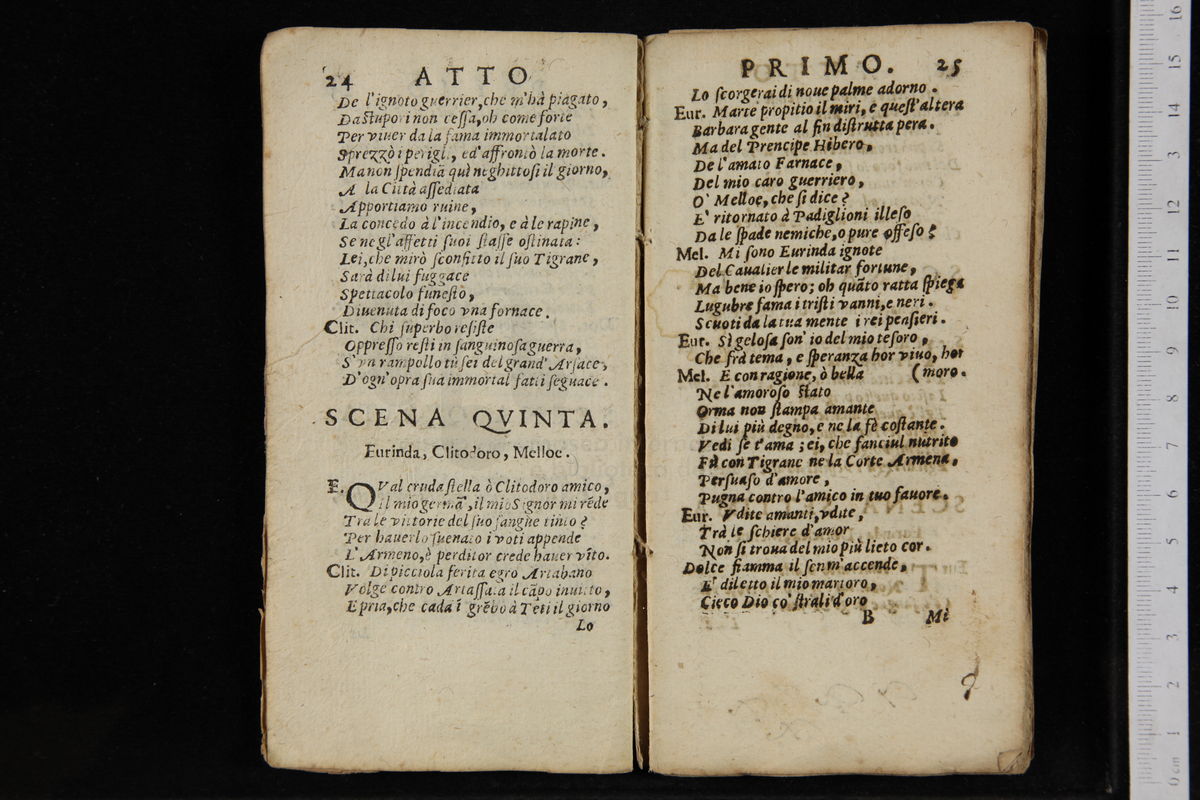 24 ATTO
De l'ignoto guerrier, che m'hà piagato,
Da stupori non cesſa, oh come forte
Per viuer da la fama immortalato
Sprezzò i perigl., ed' affrontò la morte.
Ma non ſpendiā quì neghittoſi il giorno,
A la Città aſſediata
Apportiamo ruine,
La concedo à l'incendio, e à le rapine,
Se ne gl'affetti ſuoi ſtaſſe oſtinata:
Lei, che mirò ſconfitto il ſuo Tigrane,
Sarà di lui fuggace
Spettacolo funeſto,
Diuenuta di foco vna fornace.
Clit. Chi ſuperbo reſiſte
Oppreſſo reſti in ſanguinoſa guerra,
S'vn rampollo tù ſei del grand' Arſace,
D'ogn'opra ſua immortal fatti ſeguace.
SCENA QVINTA.
Eurinda, Clitodoro, Melloe.
E. QVal cruda ſtella ò Clitodoro amico,
il mio germā, il mio Signor mi rēde
Trà le vittorie del ſuo ſangue tinto?
Per hauerlo ſuenato i voti appende
L'Armeno, è perditor crede hauer vīto.
Clit. Di picciola ferita egro Artabano
Volge contro Artaſſata il cāpo inuitto,
E pria, che cada ī grēbo à Teti il giorno
Lo
PRIMO. 25
Lo ſcorgerai di noue palme adorno.
Eur. Marte propitio il miri, e queſt'altera
Barbara gente al fin diſtrutta pera.
Ma del Prencipe Hibero,
De l'amato Farnace,
Del mio caro guerriero,
O' Melloe, che ſi dice?
E' ritornato à Padiglioni illeſo
Da le ſpade nemiche, o pure offeſo?
Mel. Mi ſono Eurinda ignote
Del Caualier le militar fortune,
Ma bene io ſpero; oh quāto ratta ſpiega
Lugubre fama i triſti vanni, e neri.
Scuoti da la tua mente i rei penſieri.
Eur. Sì geloſa ſon' io del mio teſoro,
Che frà tema, e ſperanza hor viuo, hor
Mel. E con ragione, ò bella (moro.
Ne l'amoroſo ſtato
Orma non ſtampa amante
Di lui più degno, e ne la fè coſtante.
Vedi ſe t'ama; ei, che fanciul nutrito
Fù con Tigrane ne la Corte Armena,
Perſuaſo d'amore,
Pugna contro l'amico in tuo fauore.
Eur. Vdite amanti, vdite,
Trà le ſchiere d'amor
Non ſi troua del mio più lieto cor.
Dolce fiamma il ſen m'accende,
E' diletto il mio martoro,
Cieco Dio co' ſtrali d'oro
B Mi